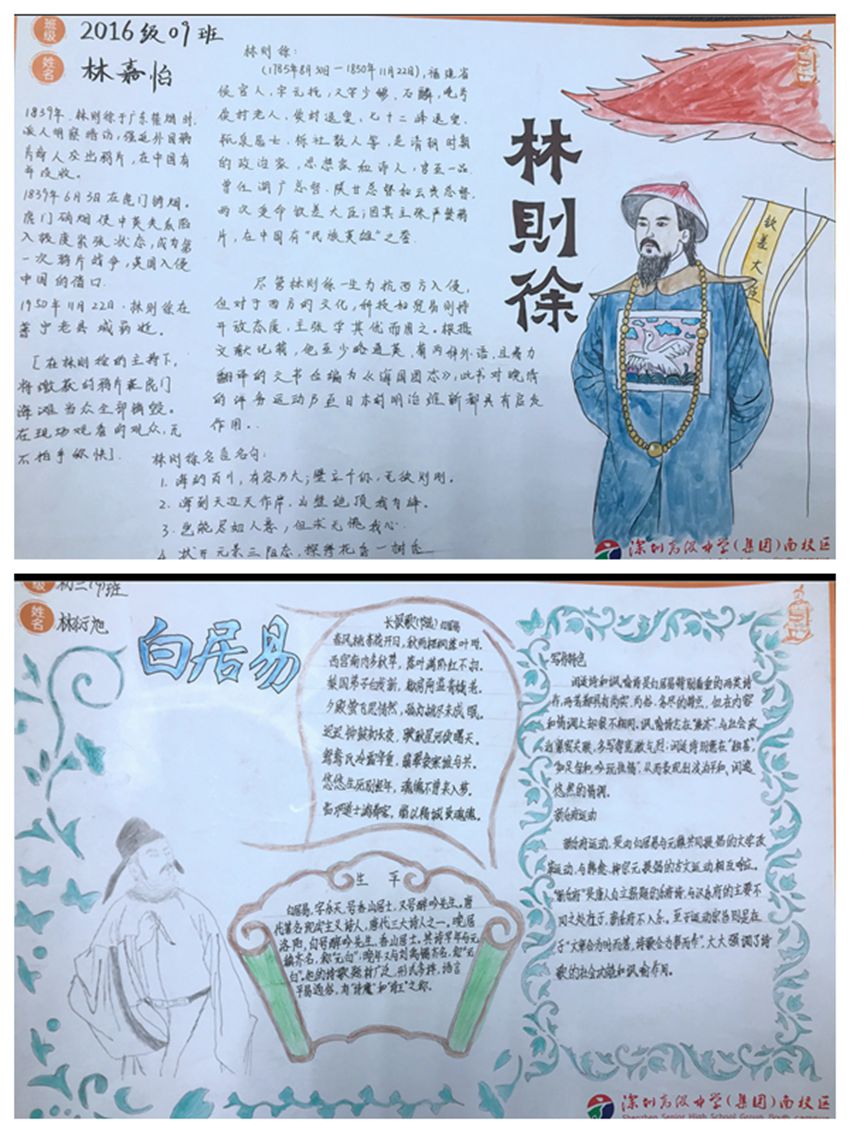 班级
2016级09班
姓名
林嘉怡
1839年，林则徐于广东禁烟时，
派人明察暗访，强迫外国鸦
片商人交出鸦片，
1839年6月3日在虎门销烟。
虎门硝烟使中英关系陷
入极度紧张状态，成为第
一次鸦片战争，英国入侵
中国的借口
1950年11月22日，林则徐在
普宁老县城病逝。
[在林则徐的主持下，
将缴获的鸦片在虎门
海滩当众全部销毁。
在现场观看的观众，无
不拍手称快]
林则徐：
(1785年8月30日－1850年11月22日)，福建省
侯官人，字元抚，又字少穆、石麟，晚号
俟村老人、俟村退叟、七十二峰退叟、
瓶泉居士、栎社散人等，是清朝时期
的政治家、思想家和诗人，官至一品
曾任湖广总督、陕甘总督和云贵总督，
两次受命钦差大臣；因其主张严禁鸦
片，在中国有“民族英雄”之誉
尽管林则徐一生力抗西方入侵，
但对于西方的文化，科技和贸易则持
开放态度，主张学其优而用之。根据
文献记载，他至少略通英、葡两种外语，且着力
翻译的文书合编为《海国图志》，此书对晚清
的洋务运动乃至日本的明治维新都具有启发
作用。
林则徐名言名句：
1. 海纳百川，有容乃大；壁立千仞，无欲则刚。
2. 海到天边天作岸，山登绝顶我为峰。
3. 岂能尽如人意，但求无愧我心
林則徐
钦差大臣
深圳高级中学(集团)南校区
级
初三19班
姓名
林衍旭
白居易
长恨歌(节选) 白居易
春风桃李花开日，秋雨梧桐落叶时
西宫南内多秋草，落叶满阶红不扫。
梨园弟子白发新，椒房阿监青娥老。
夕殿萤飞思悄然，孤灯挑尽未成眠。
迟迟钟鼓初长夜，耿耿星河欲曙天。
鸳鸯瓦冷霜华重，翡翠衾寒谁与共。
悠悠生死别经年，魂魄不曾来入梦。
临邛道士鸿都客，能以精诚致魂魄。
生平
白居易，字乐天，号香山居士，又号醉吟先生。唐
代著名现实主义诗人，唐代三大诗人之一。晚居
洛阳，自号醉吟先生、香山居士，其诗早年与元
稹齐名，称“元白”；晚年又与刘禹锡齐名，称“刘
白”。他的诗歌题材广泛，形式多样，语言
平易通俗，有“诗魔”和“诗王”之称。
写作特色
闲适诗和讽喻诗是白居易特别看重的两类诗
作，两者都具有尚实、尚俗、务尽的特点，但在内容
和情调上却很不相同。讽喻诗志在“兼济”，与社会政
治紧密关联，多写得意激气烈；闲适诗则意在“独善”，
“知足保和，吟玩性情”，从而表现出淡泊平和、闲逸
悠然的情调。
新乐府运动
新乐府运动，是由白居易与元稹共同提倡的文学改
革运动，与韩愈、柳宗元提倡的古文运动相互呼应。
“新乐府”是唐人自立新题的乐府诗，与汉乐府的主要不
同之处在于，新乐府不入乐。至于运动宗旨则是在
于“文章合为时而著，诗歌合为事而作”，大大强调了诗
歌的社会功能和讽喻作用。
深圳高级中学(集团)南校区
Shenzhen Senior High School Group South campus